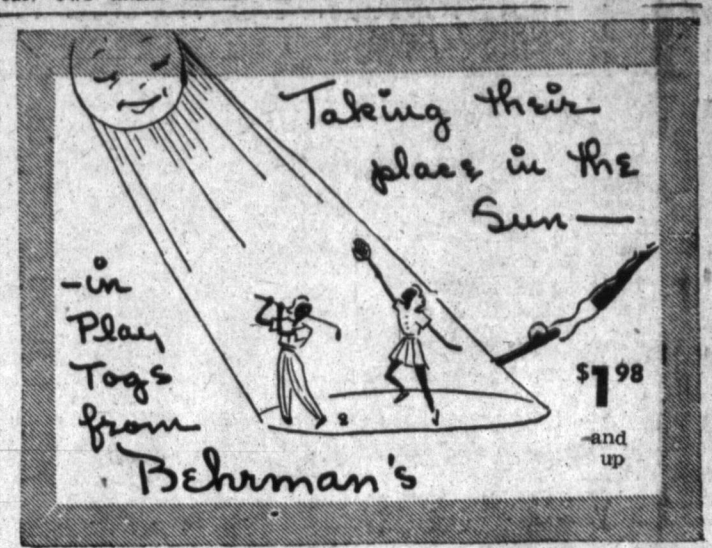 Taking their
place in the
Sun —
-in
Play
Togs
from
Behrman's
$1 98
-and
up